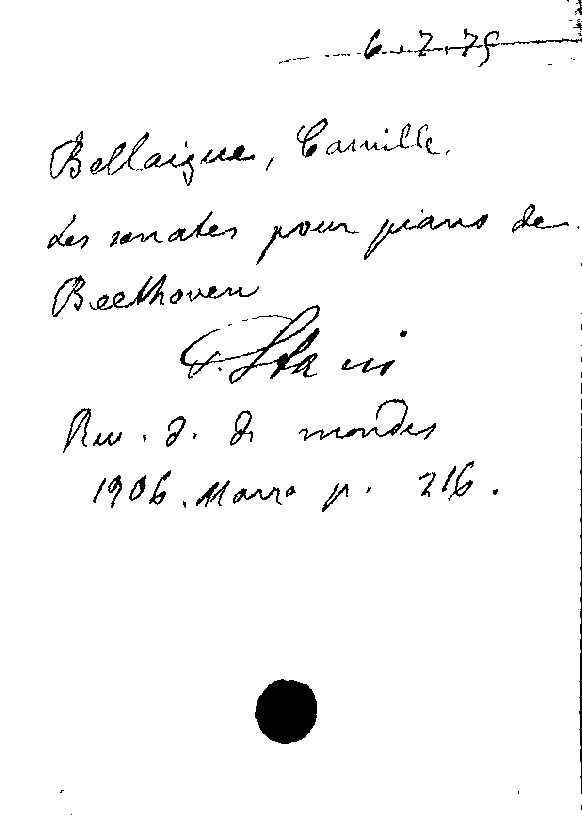 6.7.75
Bellaigue, Camille.
Les sonates pour piano de
Beethoven
Rev. d. d. mondes
1906. p. 216.